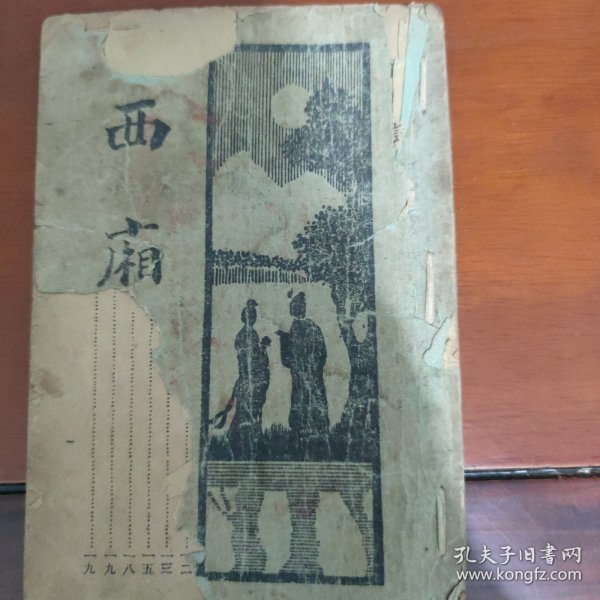 西廂
一二
一三
一五
一八
一九
一九
孔夫子旧书网
www.kongfz.com